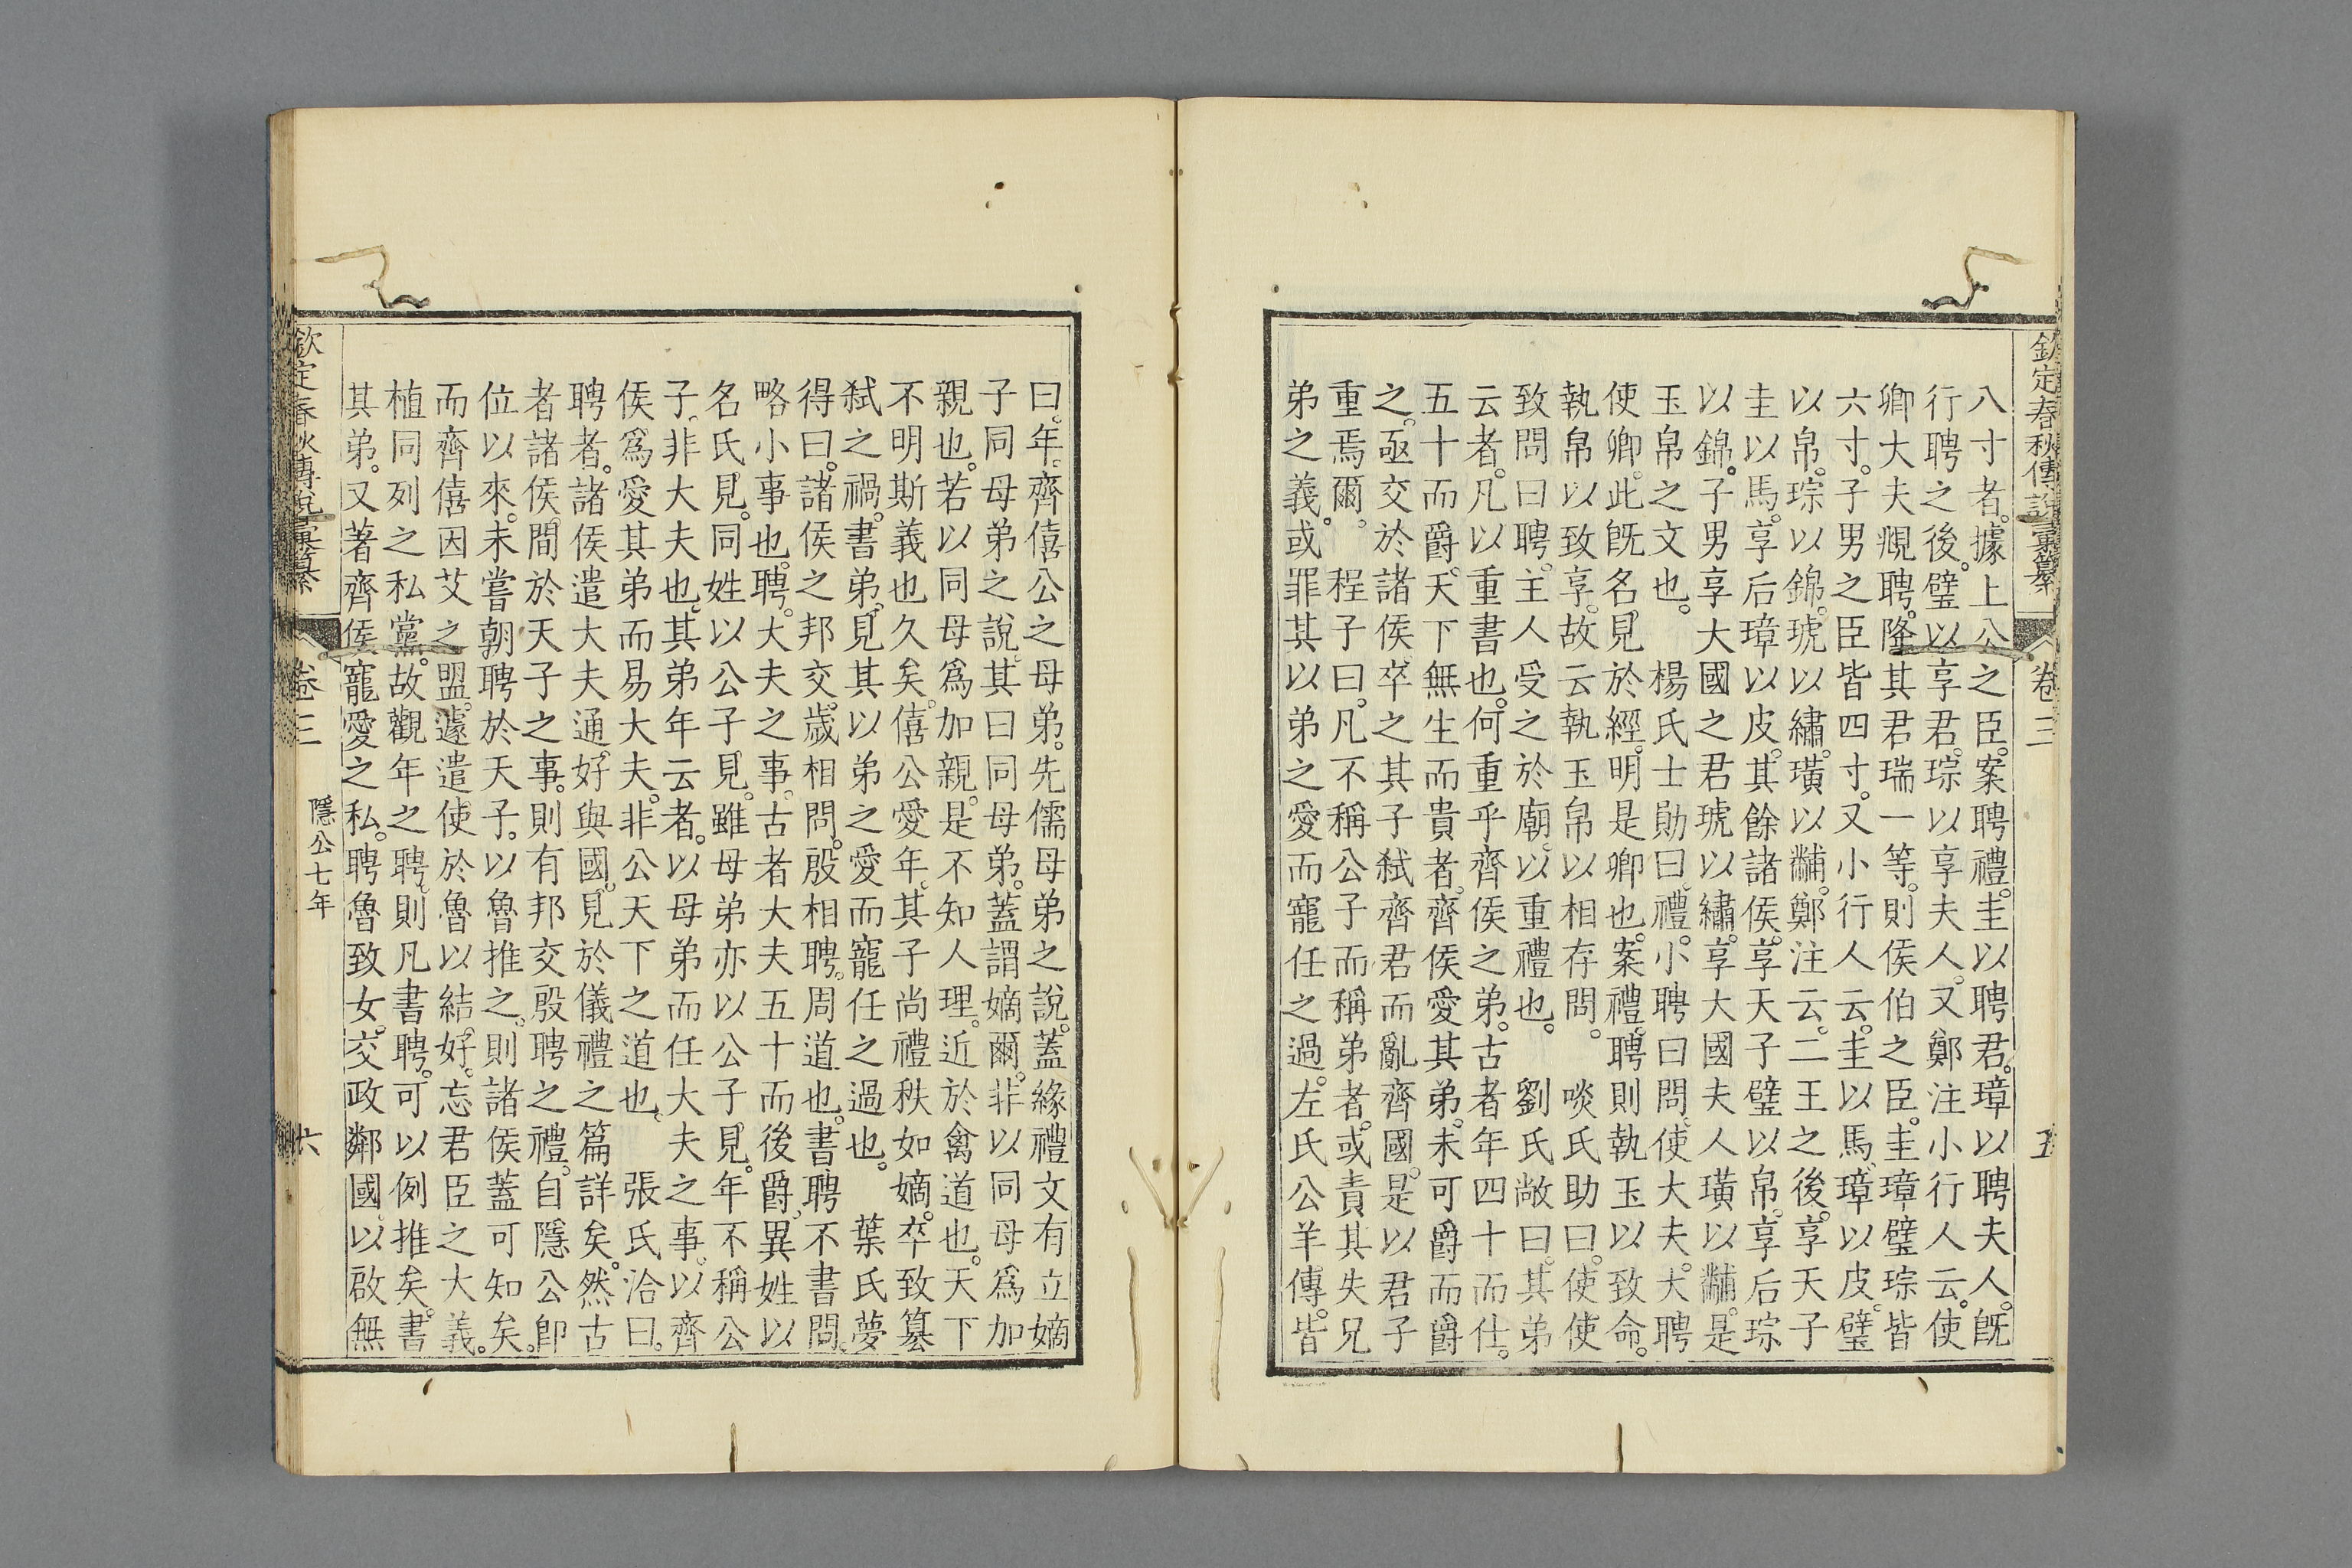 欽定春秋傳說彙纂 卷三 五
八寸者。據上公之臣。案聘禮。圭以聘君。璋以聘夫人。旣
行聘之後。璧以享君。琮以享夫人。又鄭注小行人云。使
卿大夫覜聘。降其君瑞一等。則侯伯之臣。圭璋璧琮皆
六寸。子男之臣皆四寸。又小行人云。圭以馬。璋以皮。璧
以帛。琮以錦。琥以繡。璜以黼。鄭注云。二王之後。享天子
圭以馬。享后璋以皮。其餘諸侯。享天子璧以帛。享后琮
以錦。子男享大國之君琥以繡。享大國夫人璜以黼。是
玉帛之文也。 楊氏士勛曰。禮。小聘曰問。使大夫。大聘
使卿。此旣名見於經。明是卿也。案禮。聘則執玉以致命。
執帛以致享。故云執玉帛以相存問。 啖氏助曰。使使
致問曰聘。主人受之於廟。以重禮也。 劉氏敞曰。其弟
云者。凡以重書也。何重乎齊侯之弟。古者年四十而仕。
五十而爵。天下無生而貴者。齊侯愛其弟。未可爵而爵
之。亟交於諸侯。卒之其子弑齊君而亂齊國。是以君子
重焉爾。 程子曰。凡不稱公子而稱弟者。或責其失兄
弟之義。或罪其以弟之愛而寵任之過。左氏公羊傳。皆
曰。年。齊僖公之母弟。先儒母弟之說。蓋緣禮文有立嫡
子同母弟之說。其曰同母弟。蓋謂嫡爾。非以同母爲加
親也。若以同母爲加親。是不知人理。近於禽道也。天下
不明斯義也久矣。僖公愛年。其子尚禮秩如嫡。卒致篡
弑之禍。書弟。見其以弟之愛而寵任之過也。 葉氏夢
得曰。諸侯之邦交。歲相問。殷相聘。周道也。書聘不書問。
略小事也。聘。大夫之事。古者大夫五十而後爵。異姓以
名氏見。同姓以公子見。雖母弟亦以公子見。年不稱公
子。非大夫也。其弟年云者。以母弟而任大夫之事。以齊
侯。爲愛其弟而易大夫。非公天下之道也。 張氏洽曰。
聘者。諸侯遣大夫通好與國。見於儀禮之篇詳矣。然古
者諸侯。間於天子之事。則有邦交殷聘之禮。自隱公卽
位以來。未嘗朝聘於天子。以魯推之。則諸侯蓋可知矣。
而齊僖因艾之盟。遽遣使於魯以結好。忘君臣之大義。
植同列之私黨。故觀年之聘。則凡書聘。可以例推矣。書
其弟。又著齊侯寵愛之私。聘魯致女。交政鄰國。以啟無
欽定春秋傳說彙纂 卷三 隱公七年 六